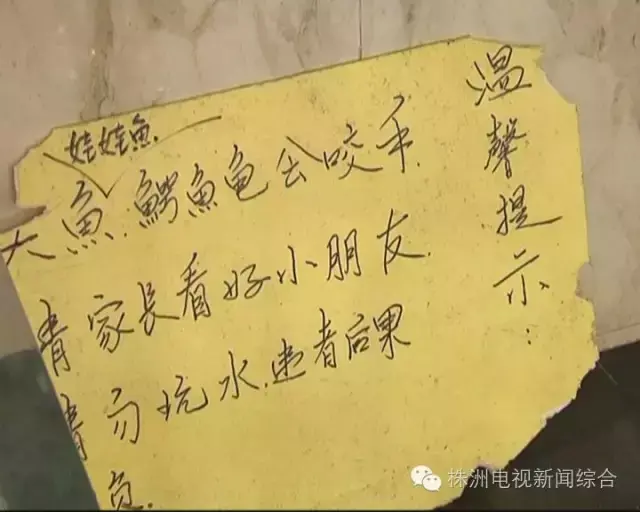 温馨提示：
娃娃鱼
大鱼.鳄鱼龟会咬手
请家长看好小朋友.
请勿玩水.违者后果
负.
株洲电视新闻综合